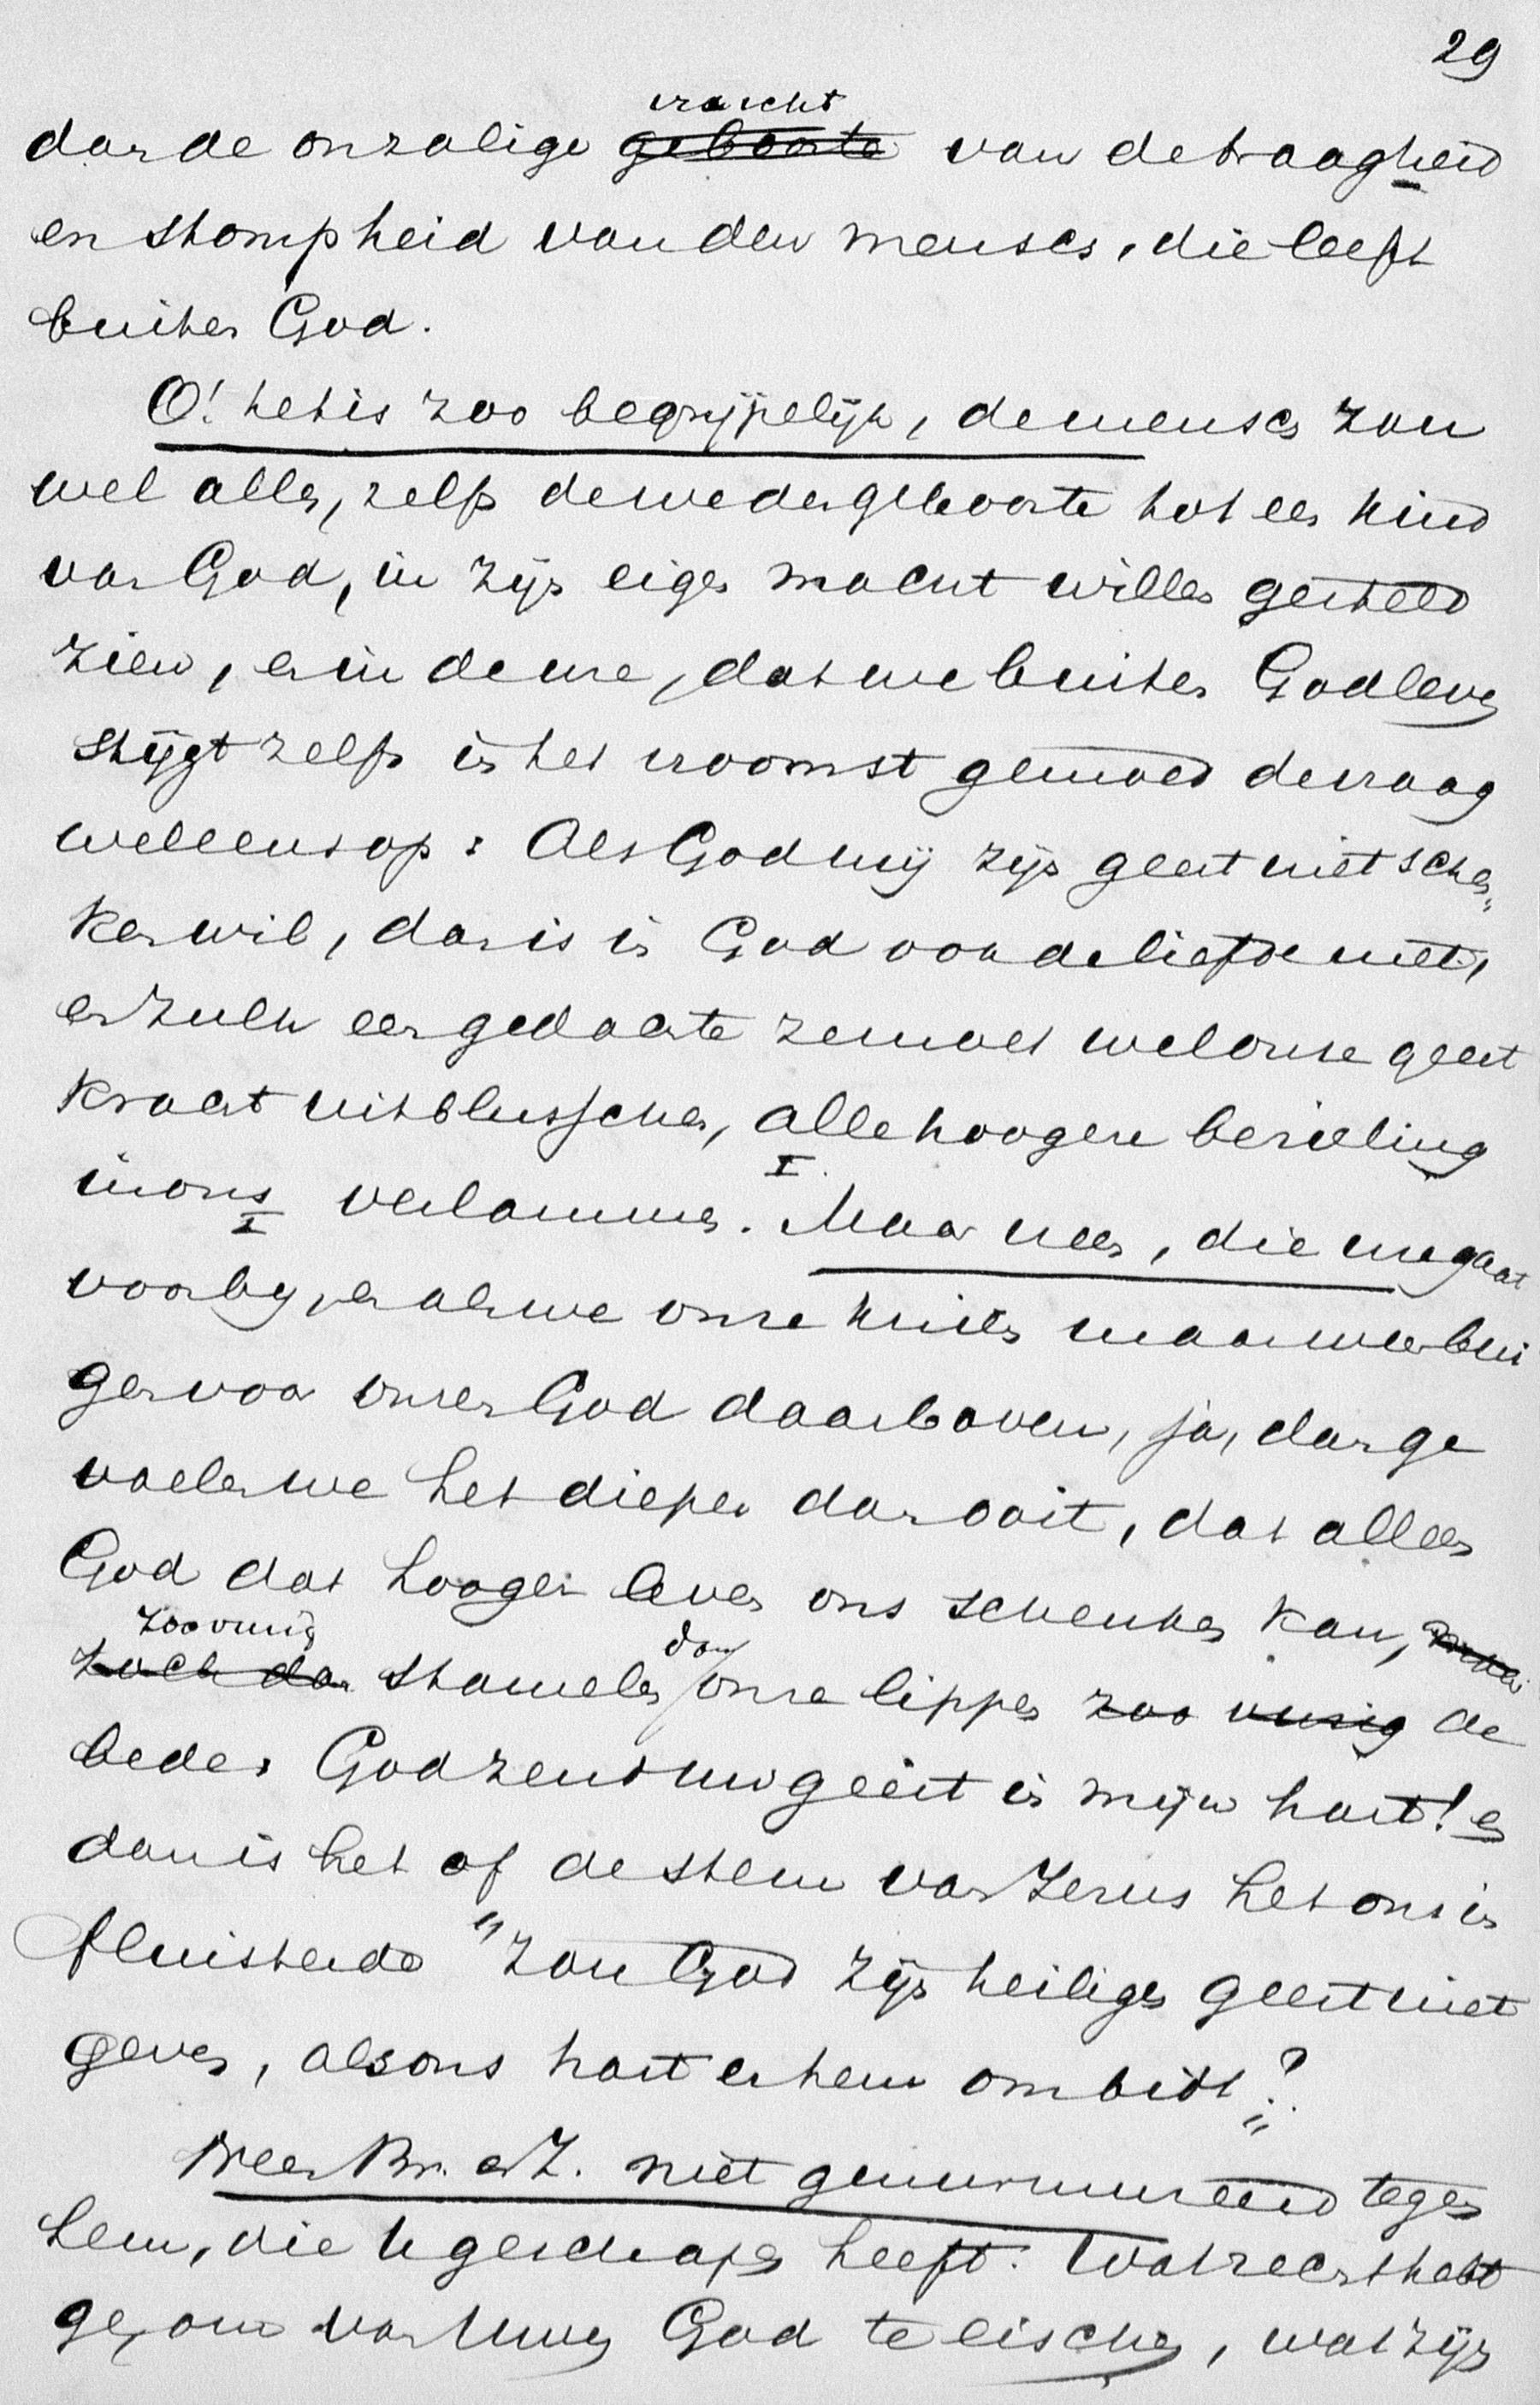 29
vrucht
dan de onzalige geboorte van de traagheid
en stompheid van den mensch, die leeft
buiten God.
O! het is zoo begrijpelijk, de mensch zou
wel alles, zelfs de wedergeboorte tot een kind
van God, in zijn eigen macht willen gesteld
zien, en in de ure, dat we buiten God leven
stijgt zelfs in het vroomst gemoed de vraag
wel eens op: Als God mij zijn geest niet schen„
ken wil, dan is in God ook de liefde niet,
en zulk een gedachte zou wel onze geest
kracht uitblusschen, alle hoogere bezieling
in ons verlammen. Maar neen, die ure gaat
voorbij, en als we onze knieën maar weer bui
gen voor onzen God daarboven, ja, dan ge
voelen we het dieper dan ooit, dat alleen
God dat hooger leven ons schenken kan,
zoo vurig
zoch dan stamelen dan onze lippen zoo vurig de
bede: God zend uw geest in mijn hart! en
dan is het of de stem van Jezus het ons in
fluisterde "Zou God zijn heiligen geest niet
geven, als ons hart er hem om bidt?"
Neen Br. en Z. niet gemurmureerd tegen
hem, die U geschapen heeft. Wat recht hebt
ge, om van Uwen God te eischen, wat zijn